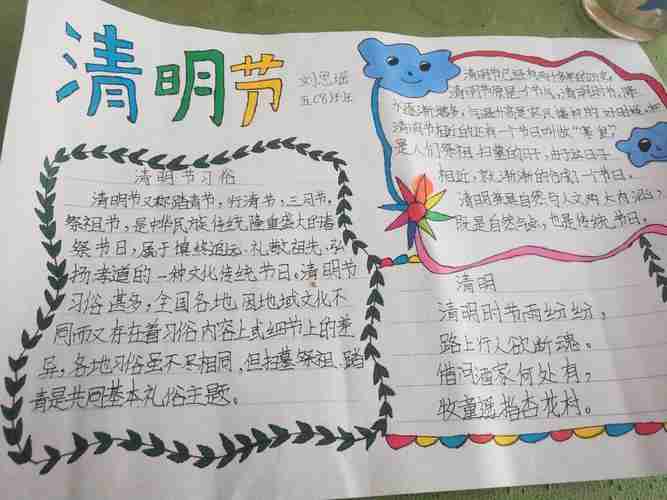 清明节
刘思瑶
五(8)班
清明节习俗
清明节又称踏青节,行清节,三月节,
祭祖节,是中华民族传统隆重盛大的春
祭节日,属于慎终追远、礼敬祖先、弘
扬孝道的一种文化传统节日,清明节
习俗甚多,全国各地因地域文化不
同而又存在着习俗内容上或细节上的差
异,各地习俗虽不尽相同,但扫墓祭祖、踏
青是共同基本礼俗主题。
清明节已经有两千多年的历史,
清明节原是一个节气,清明时节,降
水逐渐增多,气温升高是农民播种的好时候,和
清明节相近的还有一个节日叫做“寒食”
是人们祭祖扫墓的日子,由于这日子
相近,就渐渐的合成一个节日。
清明兼具自然与人文两大内涵,
既是自然气,也是传统节日。
清明
清明时节雨纷纷,
路上行人欲断魂。
借问酒家何处有,
牧童遥指杏花村。